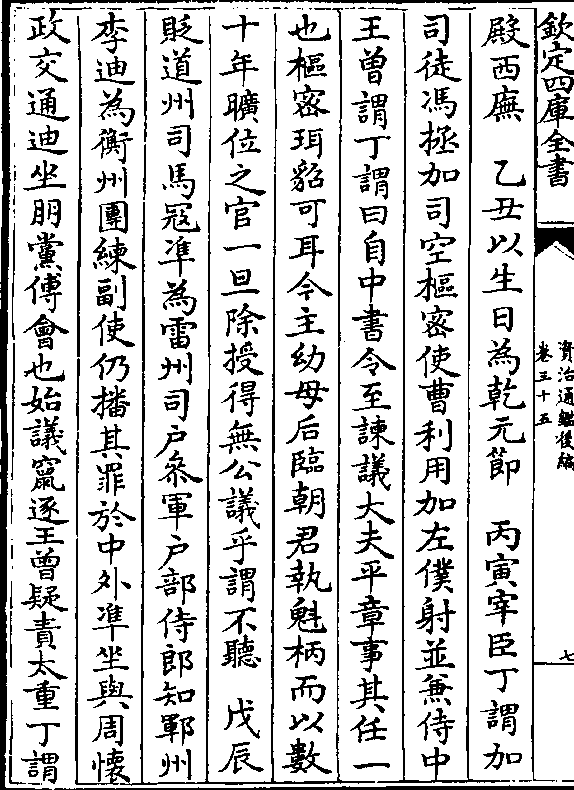 欽定四庫全書
資治通鑑後編
卷三十五
七
殿西廡　乙丑以生日為乾元節　丙寅宰臣丁謂加
司徒馮拯加司空樞密使曹利用加左僕射並兼侍中
王曾謂丁謂曰自中書令至諫議大夫平章事其任一
也樞宻珥貂可耳今主幼母后臨朝君執魁柄而以數
十年曠位之官一旦除授得無公議乎謂不聽　戊辰
貶道州司馬寇凖為雷州司户叅軍户部侍郎知鄆州
李迪為衡州團練副使仍播其罪於中外凖坐與周懷
政交通迪坐朋黨傅會也始議竄逐王曾疑責太重丁謂